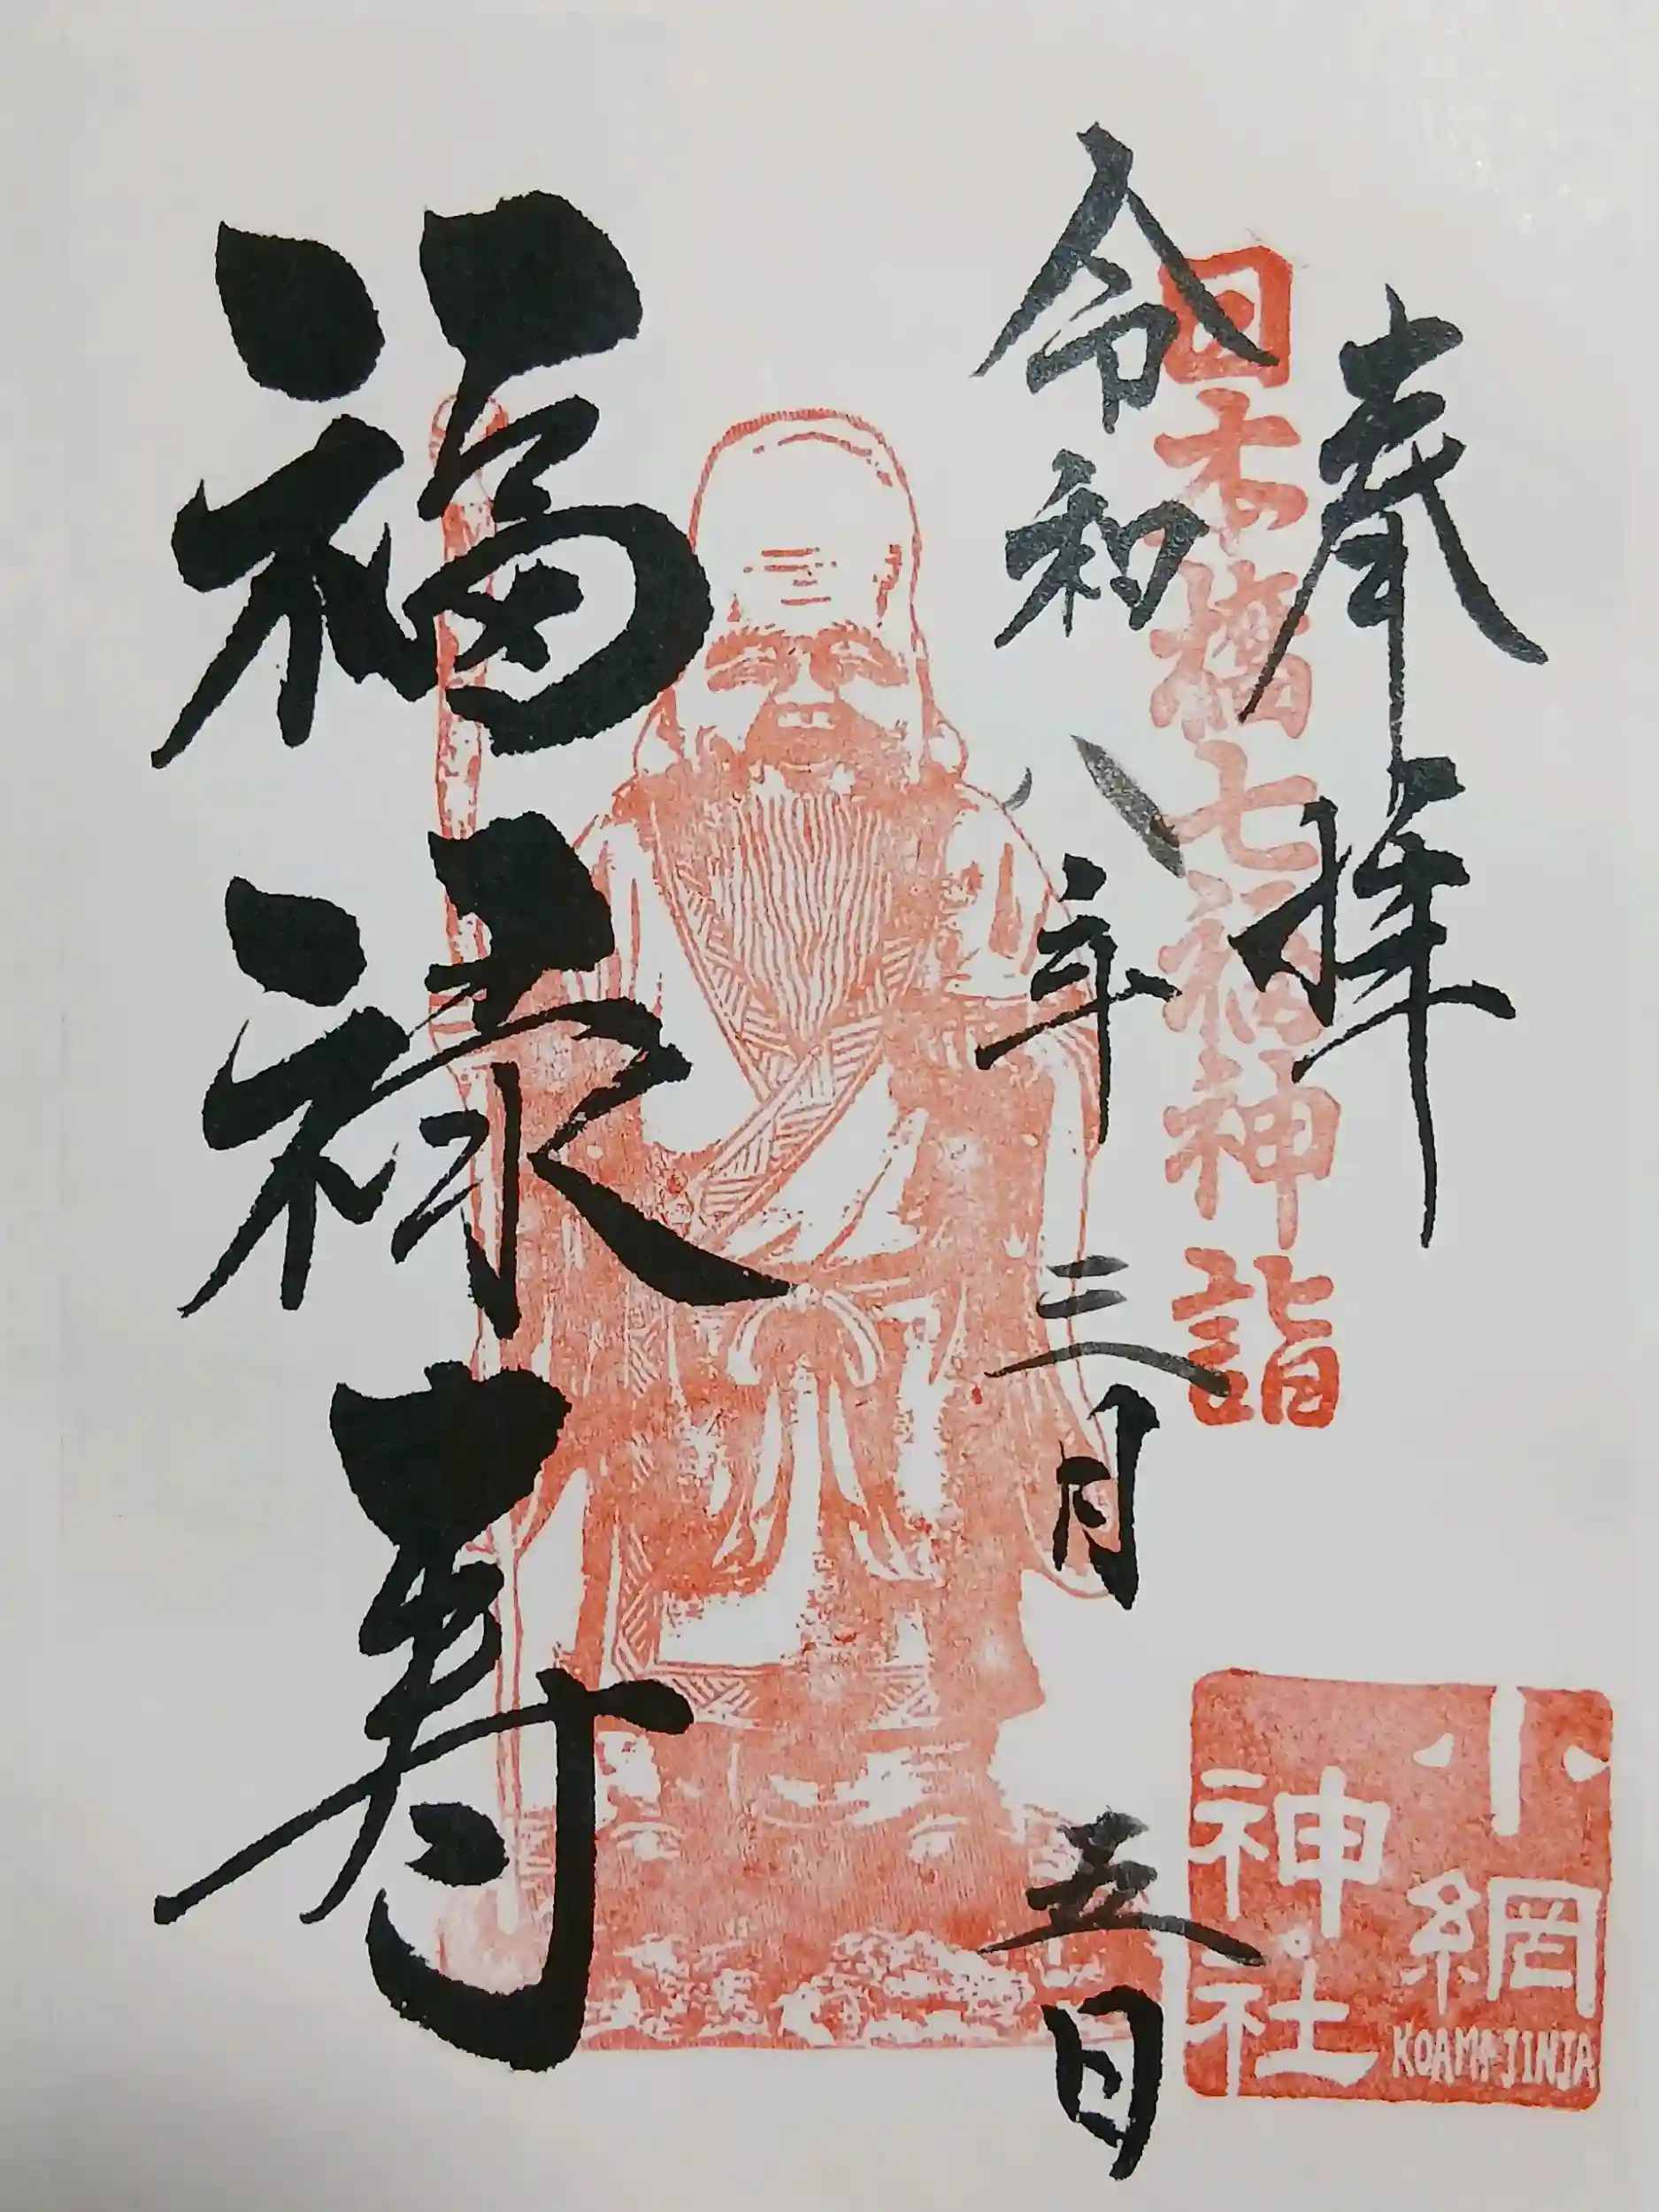 奉拝
日本橋七福神詣
令和八年三月五日
福禄寿
小網
神社
KOAMI JINJA